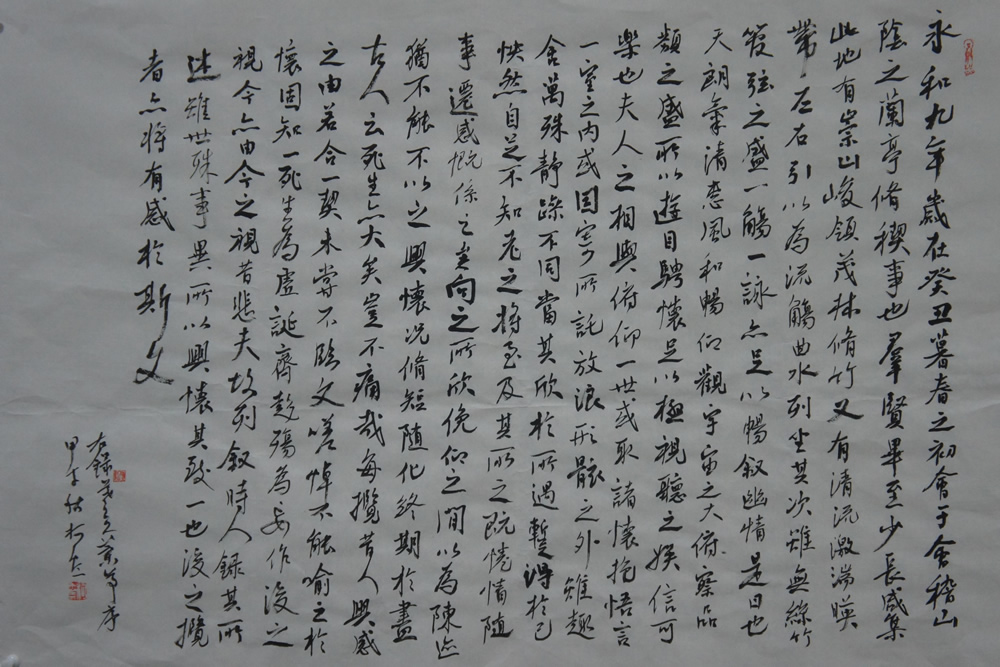 永和九年歲在癸丑暮春之初會于會稽山
陰之蘭亭脩禊事也羣賢畢至少長咸集
此地有崇山峻領茂林脩竹又有清流激湍暎
帶左右引以為流觴曲水列坐其次雖無絲竹
管弦之盛一觴一詠亦足以暢叙幽情是日也
天朗氣清惠風和暢仰觀宇宙之大俯察品
類之盛所以遊目騁懷足以極視聽之娛信可
樂也夫人之相與俯仰一世或取諸懷抱悟言
一室之內或因寄所託放浪形骸之外雖趣
舍萬殊靜躁不同當其欣於所遇蹔得於己
怏然自足不知老之將至及其所之既惓情隨
事遷感慨係之矣向之所欣俛仰之閒以為陳迹
猶不能不以之興懷況脩短隨化終期於盡
古人云死生亦大矣豈不痛哉每攬昔人興感
之由若合一契未嘗不臨文嗟悼不能喻之於
懷固知一死生為虛誕齊彭殤為妄作後之
視今亦由今之視昔悲夫故列叙時人錄其所
述雖世殊事異所以興懷其致一也後之攬
者亦將有感於斯文
右錄羲之蘭亭序
甲午秋